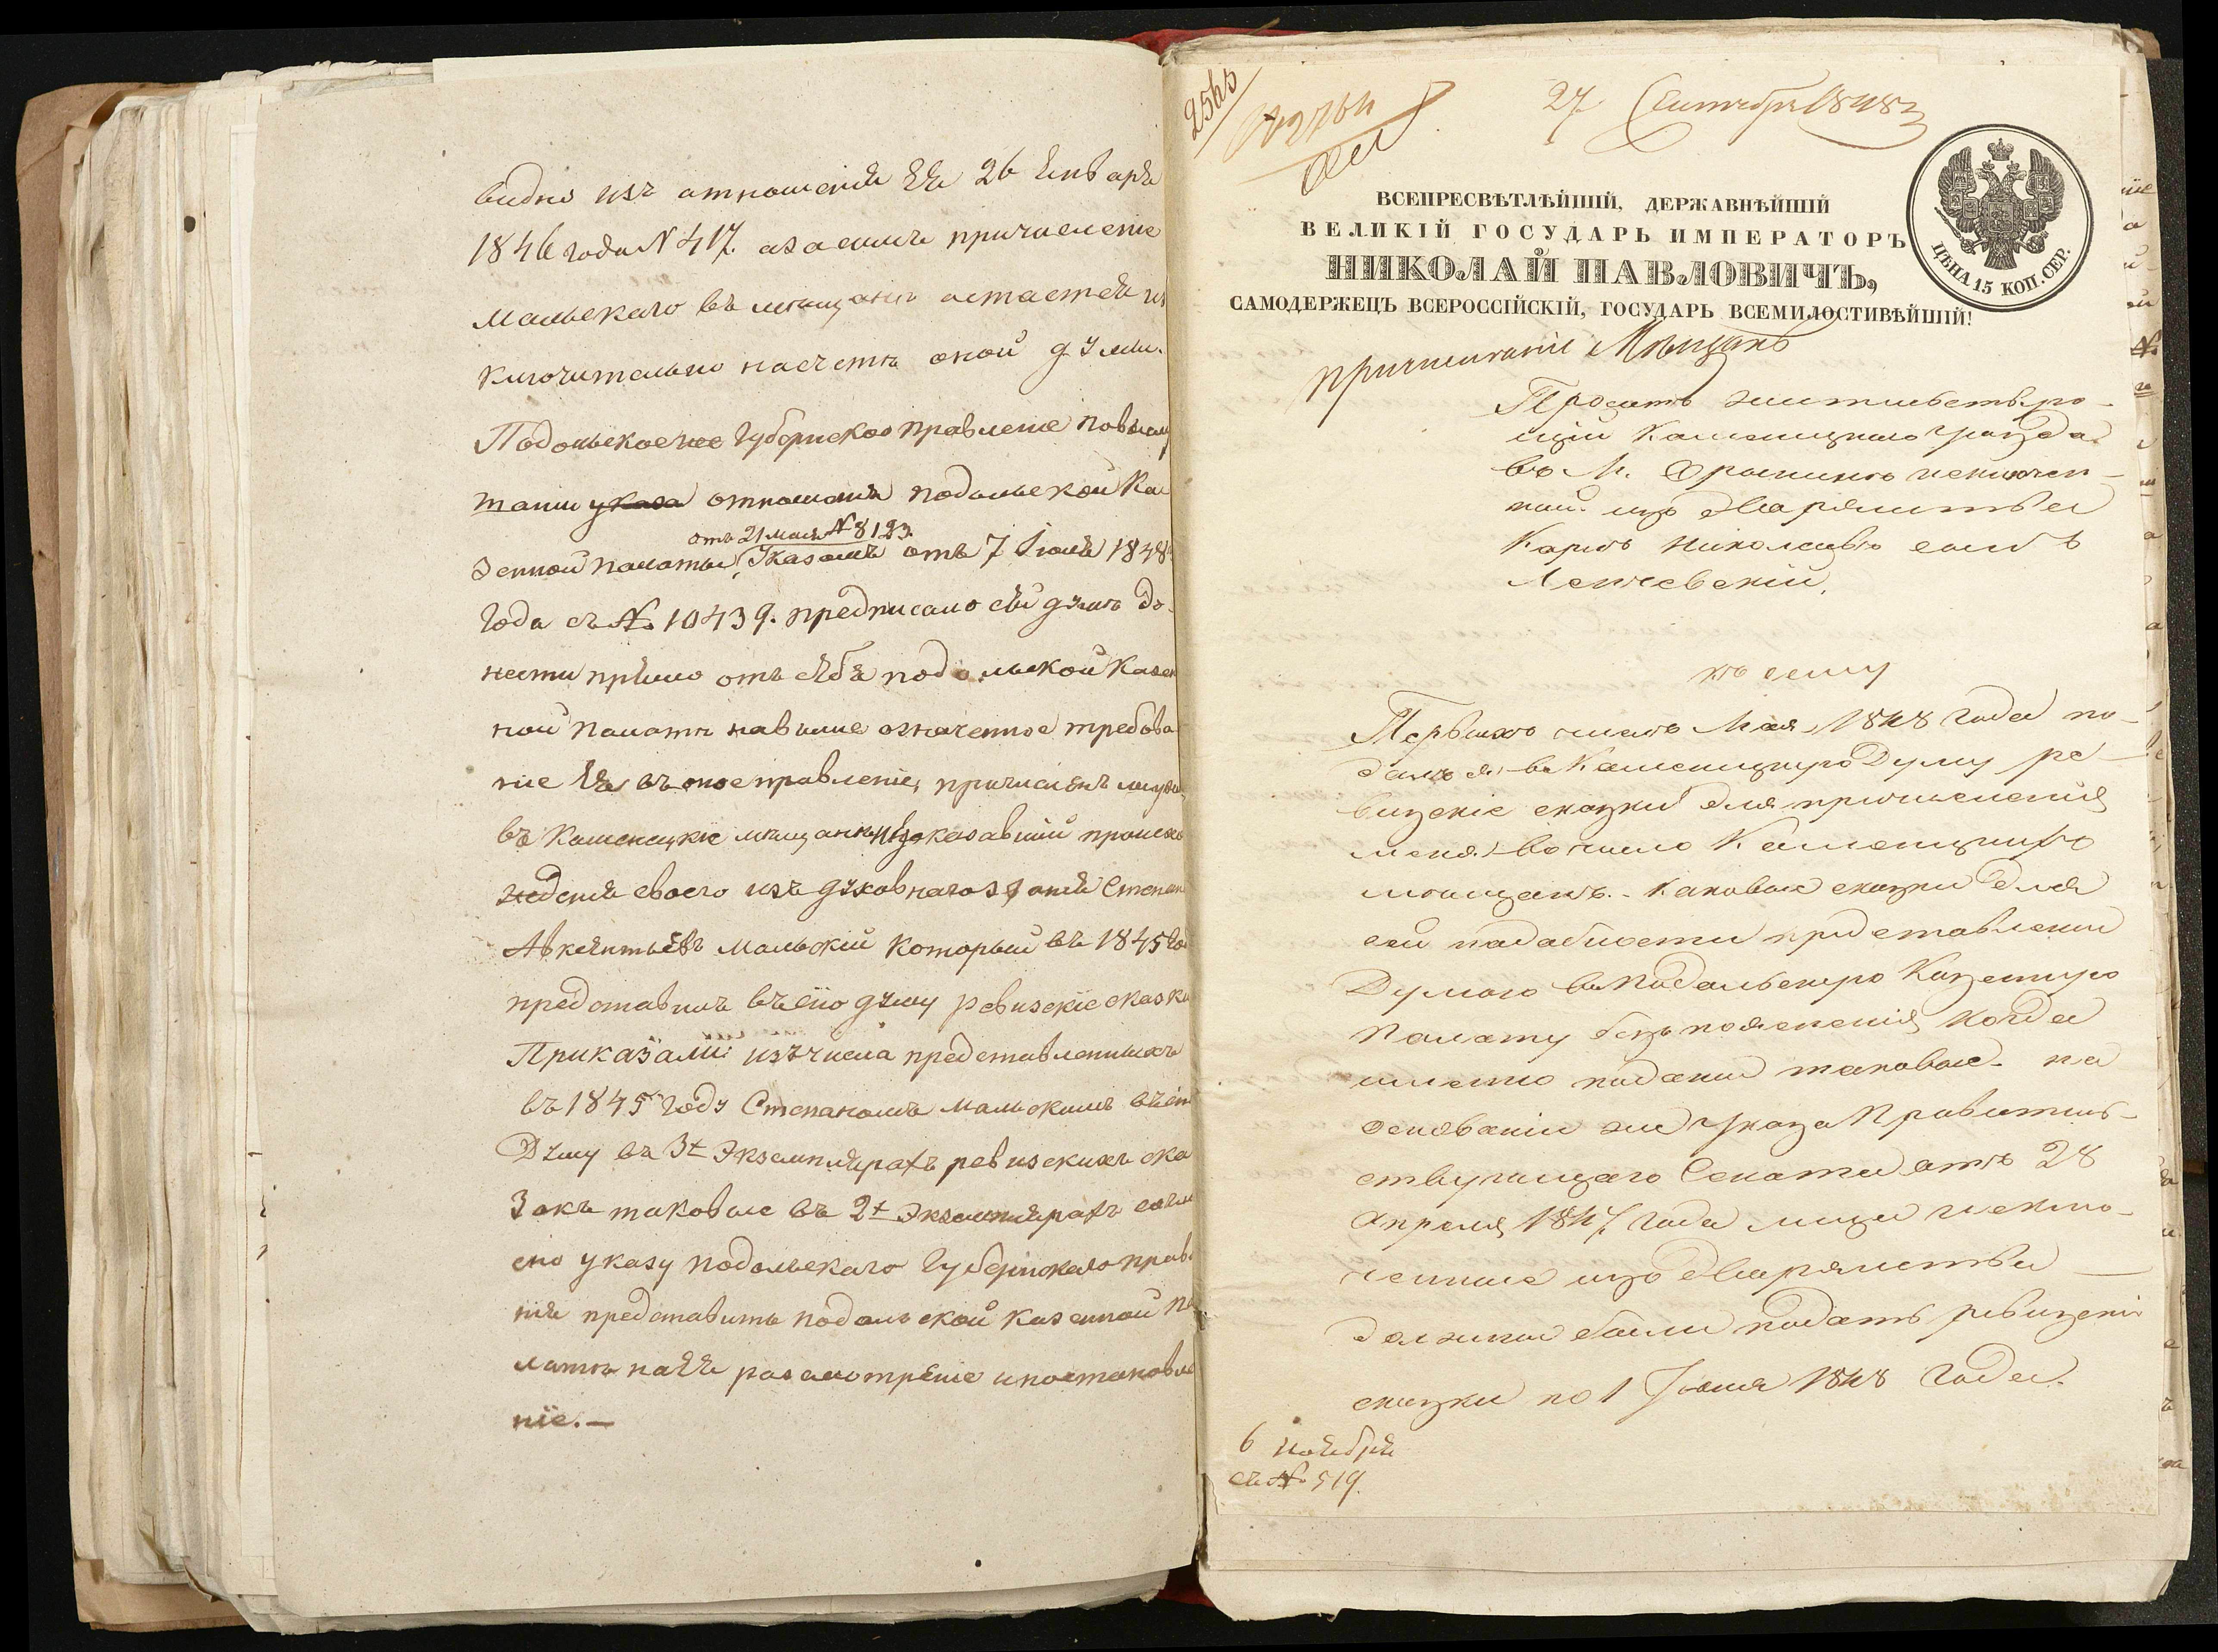 видно изъ отношенія Ея 26 Января
1846 года N 417. а засимъ причисленіе
Мальскаго въ мѣщане остается ис
ключительно насчетъ оной думы.
Подольское же Губернское правленіе повыслу
таніи указа отношенія подольской Ка
отъ 21 мая № 8123.
зенной палаты, Указомъ отъ 7 Іюня 1848
года съ № 10439. предписало сѣй думѣ до-
нести прямо отъ сѣбя подольской Казен
ной Палатѣ навыше означенное требова
ніе Ея въ оное правленіе, причисленъ
въ Каменецкіе мѣщане недоказавшій происхо
жденія своего изъ духовнаго званія Степан
Авксентьевъ Мальскій который въ 1845 год
представилъ въ сію думу ревизскіе сказки
Приказали: изъ числа представленныхъ
въ 1845 году Степаномъ Мальскимъ въ сію
Думу въ 3х Экземплярахъ ревизскихъ ска
зокъ таковые въ 2х Экземплярахъ согла
сно указу подольскаго Губернскаго правле
нія представить подольской казенной па
латѣ на Ея разсмотрѣніе и постановле
ніе.—
2565
27 Сентября 1848
ВСЕПРЕСВѢТЛѢЙШІЙ, ДЕРЖАВНѢЙШІЙ
ВЕЛИКІЙ ГОСУДАРЬ ИМПЕРАТОРЪ
НИКОЛАЙ ПАВЛОВИЧЪ,
САМОДЕРЖЕЦЪ ВСЕРОССІЙСКІЙ, ГОСУДАРЬ ВСЕМИЛОСТИВѢЙШІЙ!
ЦѢНА 15 КОП. СЕР.
Мѣщанъ
Проситъ жительствую-
щій Каменецкаго уѣзда
въ М. исключен-
ный изъ Дворянства
Карлъ Николаевъ сынъ
къ сему
Первыхъ числъ Мая 1848 года по-
далъ я въ Каменецкую Думу ре-
визскіе сказки для причисленія
меня въ число Каменецкихъ
мѣщанъ. - Каковые сказки для
сей надобности представлены
Думою въ Подольскую Казенную
Палату безъ поясненія когда
именно поданы таковые. на
основаніи же Указа Правитель-
ствующаго Сената отъ 28
Апреля 1847 года лица исклю-
ченные изъ Дворянства
должны были подать ревизскіе
сказки по 1 Іюля 1848 года.
6 ноября
съ № 519.